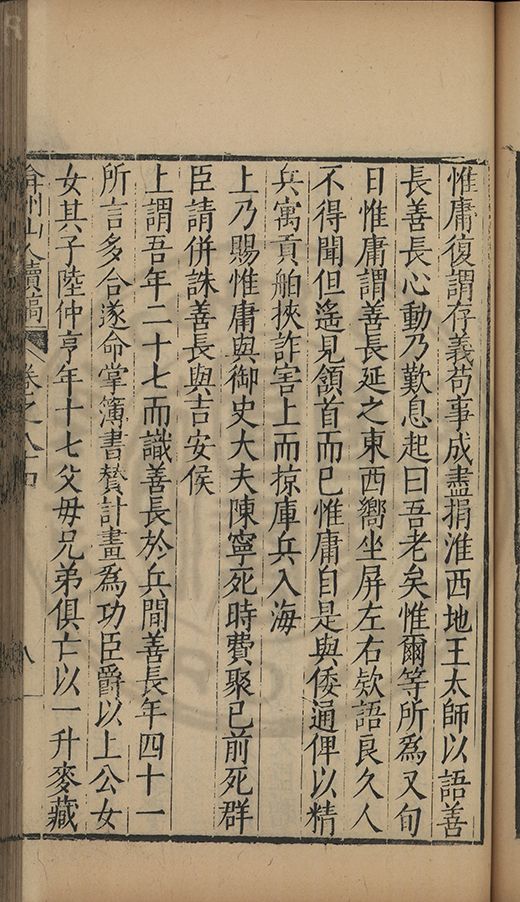 惟庸復謂存義苟事成盡捐淮西地王太師以語善
長善長心動乃歎息起曰吾老矣惟爾等所爲又旬
日惟庸謂善長延之東西嚮坐屏左右欵語良久人
不得聞但遙見頷首而已惟庸自是與倭通俾以精
兵寓貢舶挾詐害上而掠庫兵入海
上乃賜惟庸與御史大夫陳寧死時費聚已前死群
臣請併誅善長與吉安侯
上謂吾年二十七而識善長於兵間善長年四十一
所言多合遂命掌簿書賛計畫爲功臣爵以上公女
女其子陸仲亨年十七父母兄弟俱亡以一升麥藏
弇州山人續稿 卷之八十四 八